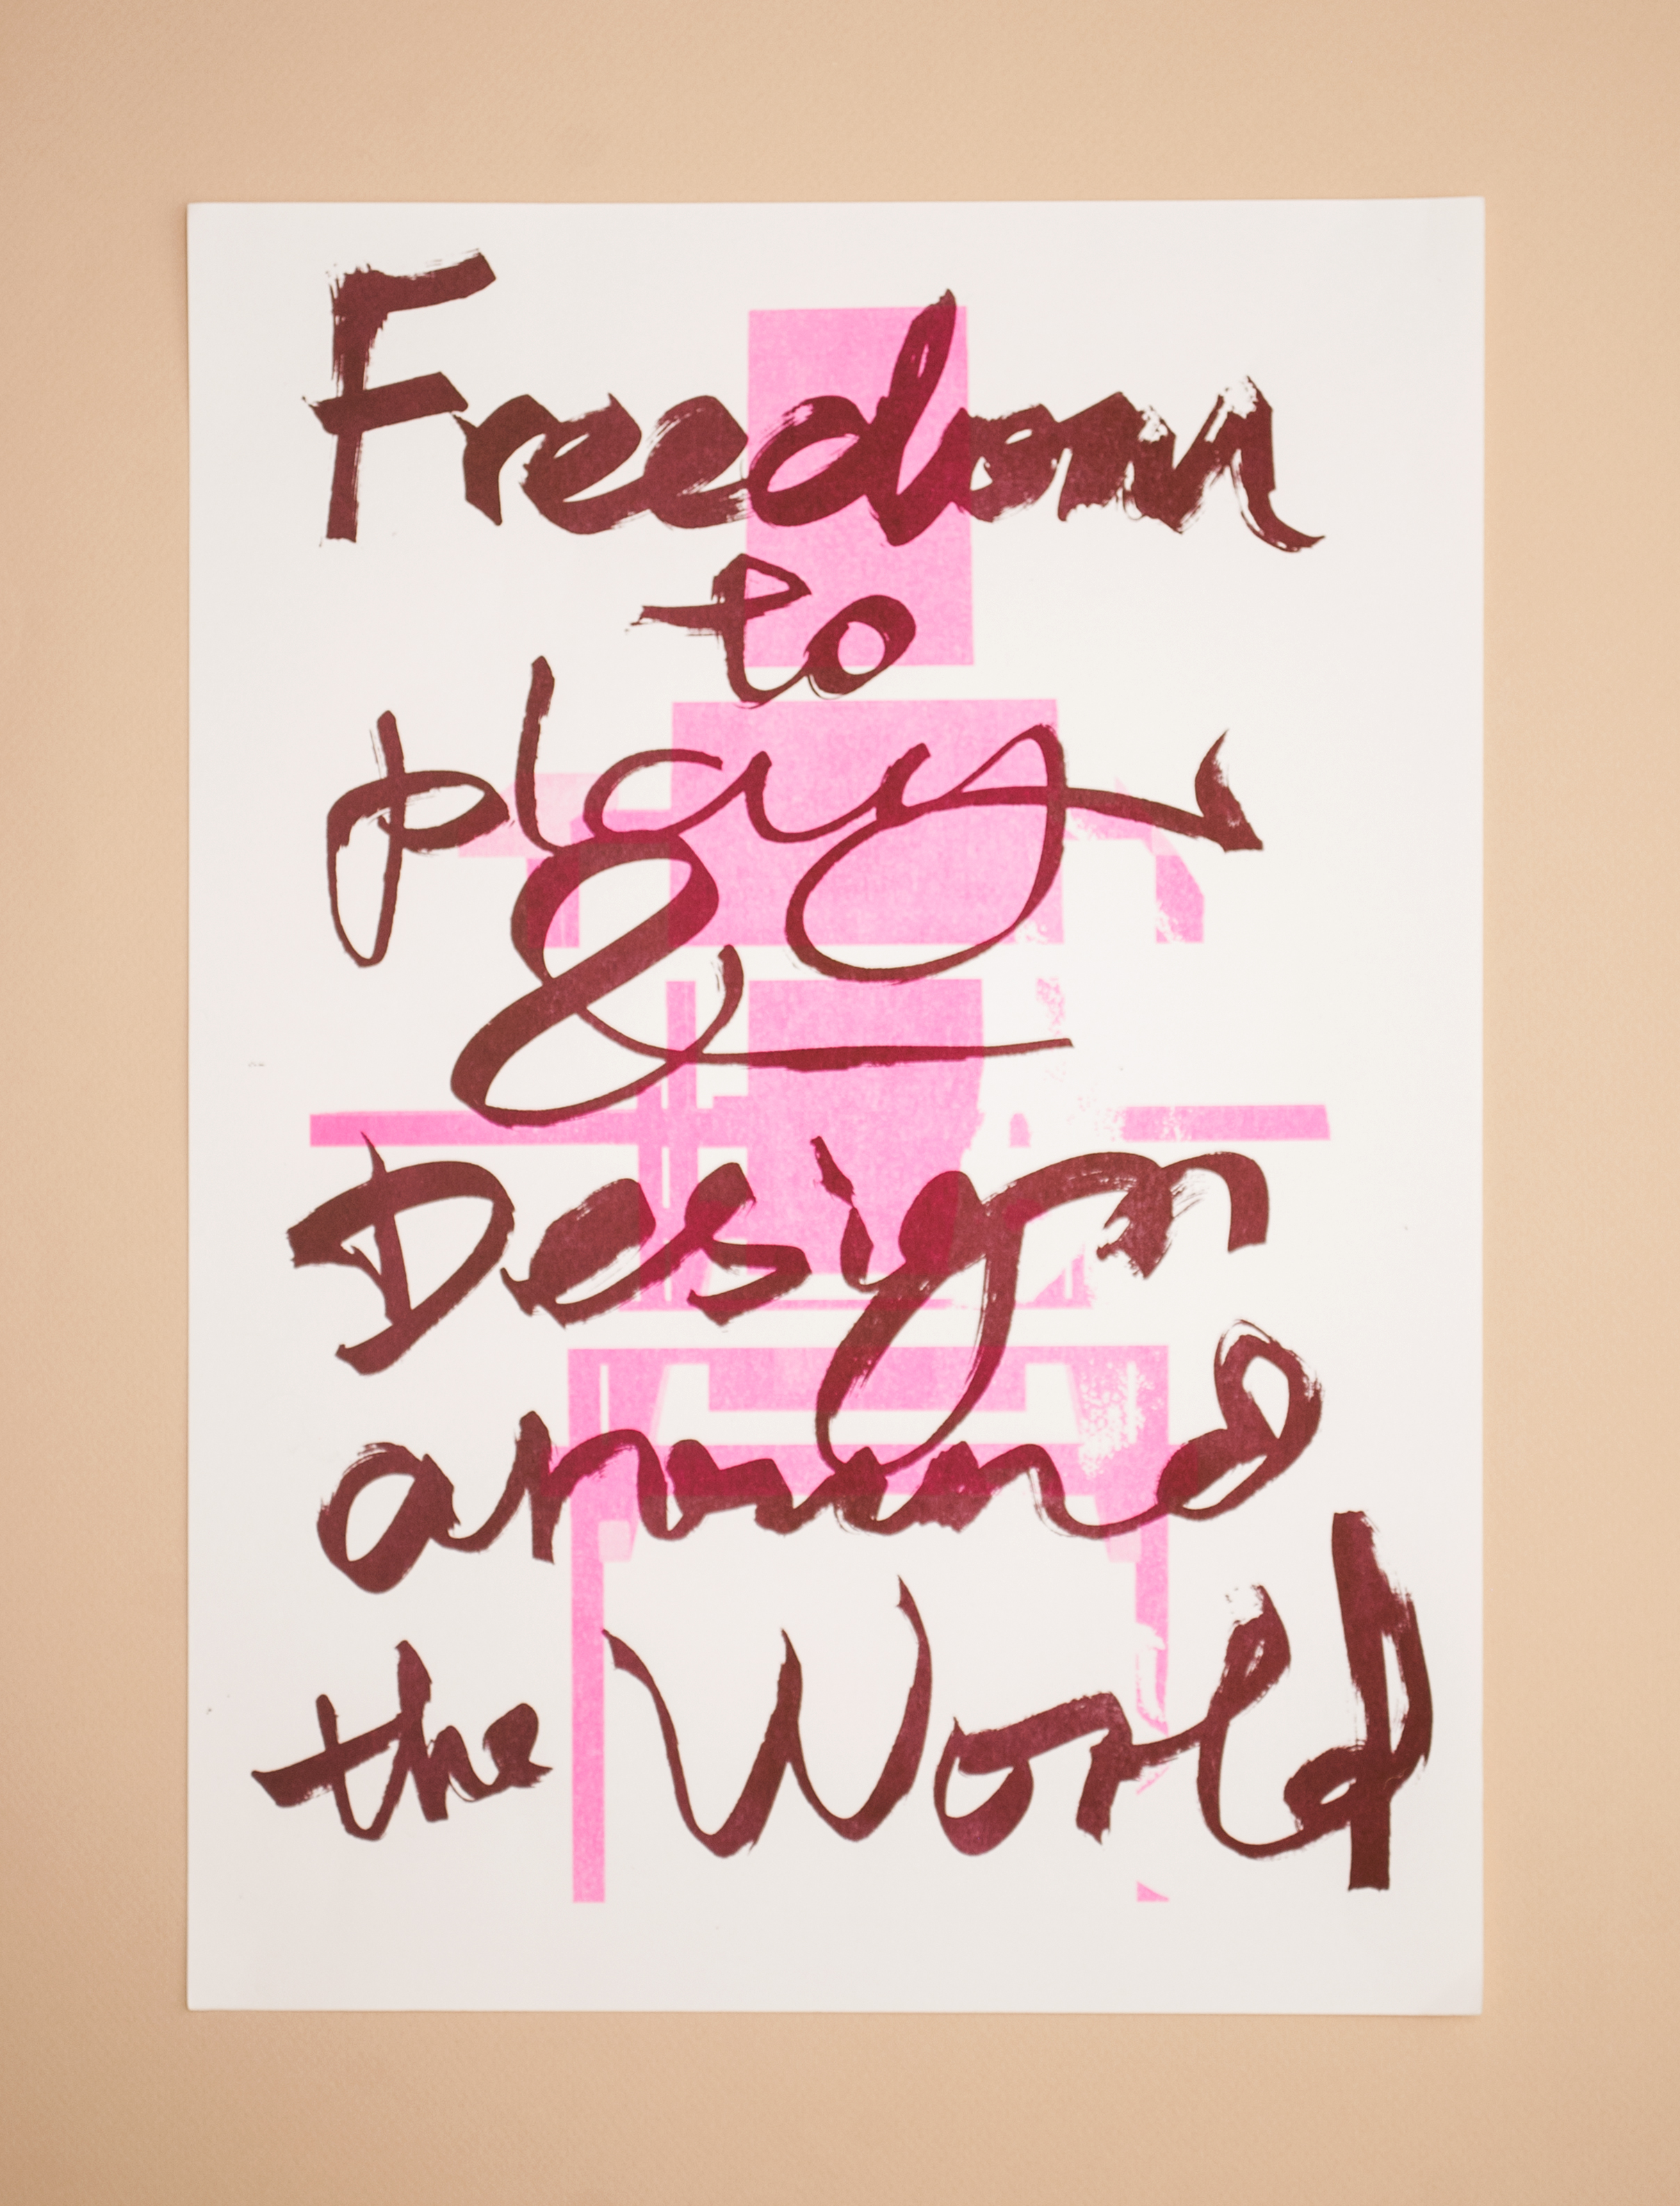 Freedom
to
play
&
Design
around
the World